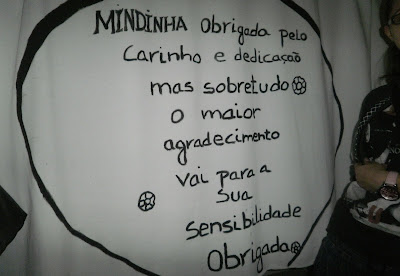 MINDINHA Obrigada pelo
Carinho e dedicação
mas sobretudo
o maior
agradecimento
vai para a
Sua
sensibilidade
Obrigada